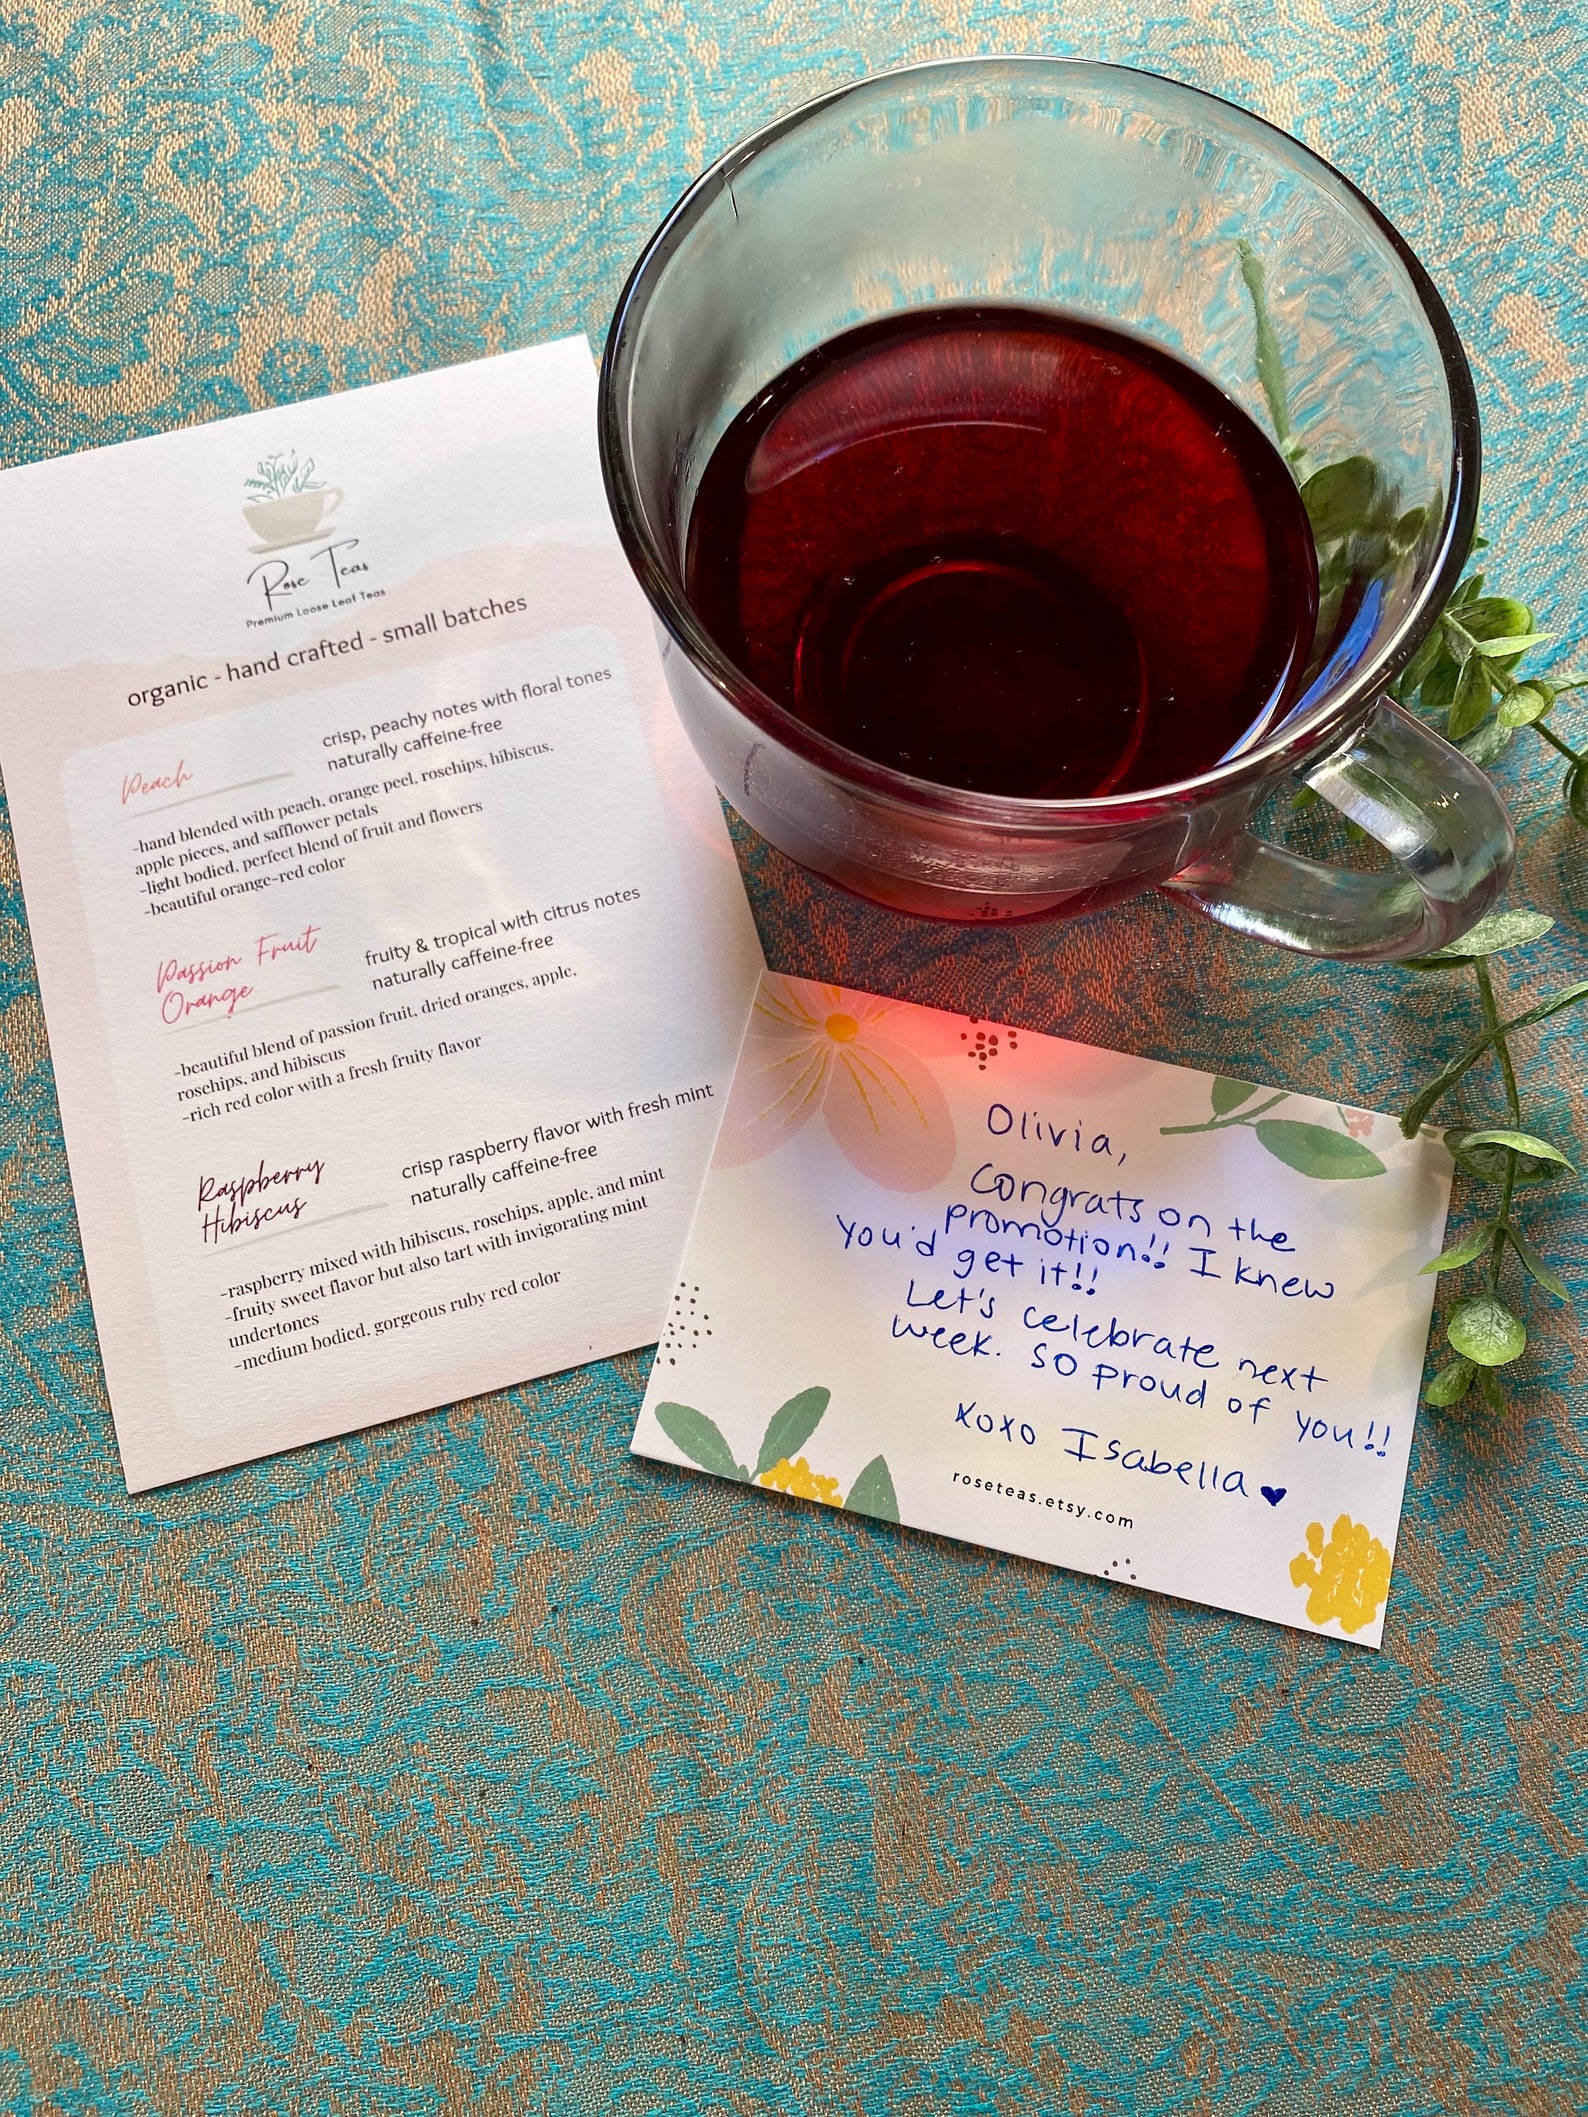 Rose Teas
Premium Loose Leaf Teas
organic - hand crafted - small batches
Peach
crisp, peachy notes with floral tones
naturally caffeine-free
-hand blended with peach, orange peel, roschips, hibiscus,
apple pieces, and safflower petals
-light bodied, perfect blend of fruit and flowers
-beautiful orange-red color
Passion Fruit
Orange
fruity & tropical with citrus notes
naturally caffeine-free
-beautiful blend of passion fruit, dried oranges, apple,
roschips, and hibiscus
-rich red color with a fresh fruity flavor
Raspberry
Hibiscus
crisp raspberry flavor with fresh mint
naturally caffeine-free
-raspberry mixed with hibiscus, roschips, apple, and mint
-fruity sweet flavor but also tart with invigorating mint
undertones
-medium bodied, gorgeous ruby red color
Olivia,
Congrats on the
promotion!! I knew
you'd get it!!
Let's celebrate next
week. SO proud of you!!
xoxo Isabella ♥
roseteas.etsy.com